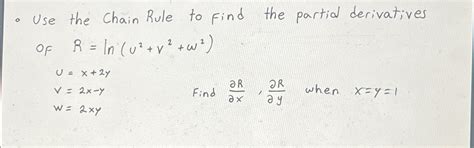 • Use the Chain Rule to find the partial derivatives
OF R = ln (u² + v² + w²)
U = x + 2y
V = 2x - y Find ∂R/∂x , ∂R/∂y when x = y = 1
W = 2xy